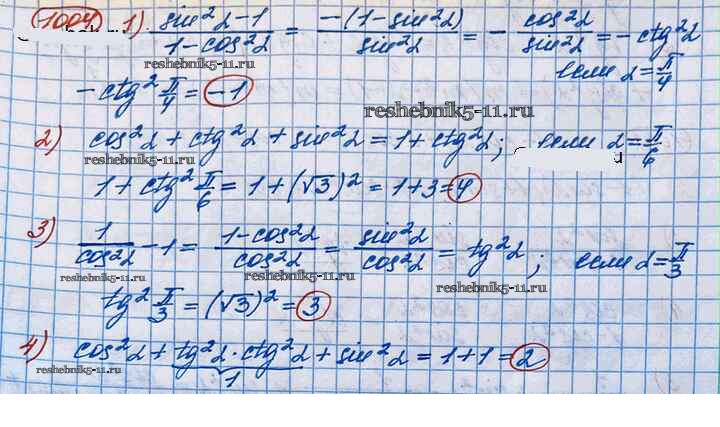 1004 1) (sin²α-1)/(1-cos²α) = (-(1-sin²α))/(sin²α) = - cos²α/sin²α = -ctg²α
reshebnik5-11.ru
если α=π/4
-ctg² π/4 = -1
reshebnik5-11.ru
2) cos²α + ctg²α + sin²α = 1 + ctg²α; если α=π/6
reshebnik5-11.ru
1 + ctg² π/6 = 1 + (√3)² = 1+3=4
3) 1/cos²α - 1 = (1-cos²α)/cos²α = sin²α/cos²α = tg²α; если α=π/3
reshebnik5-11.ru reshebnik5-11.ru reshebnik5-11.ru
tg² π/3 = (√3)² = 3
4) cos²α + tg²α · ctg²α + sin²α = 1+1=2
1
reshebnik5-11.ru